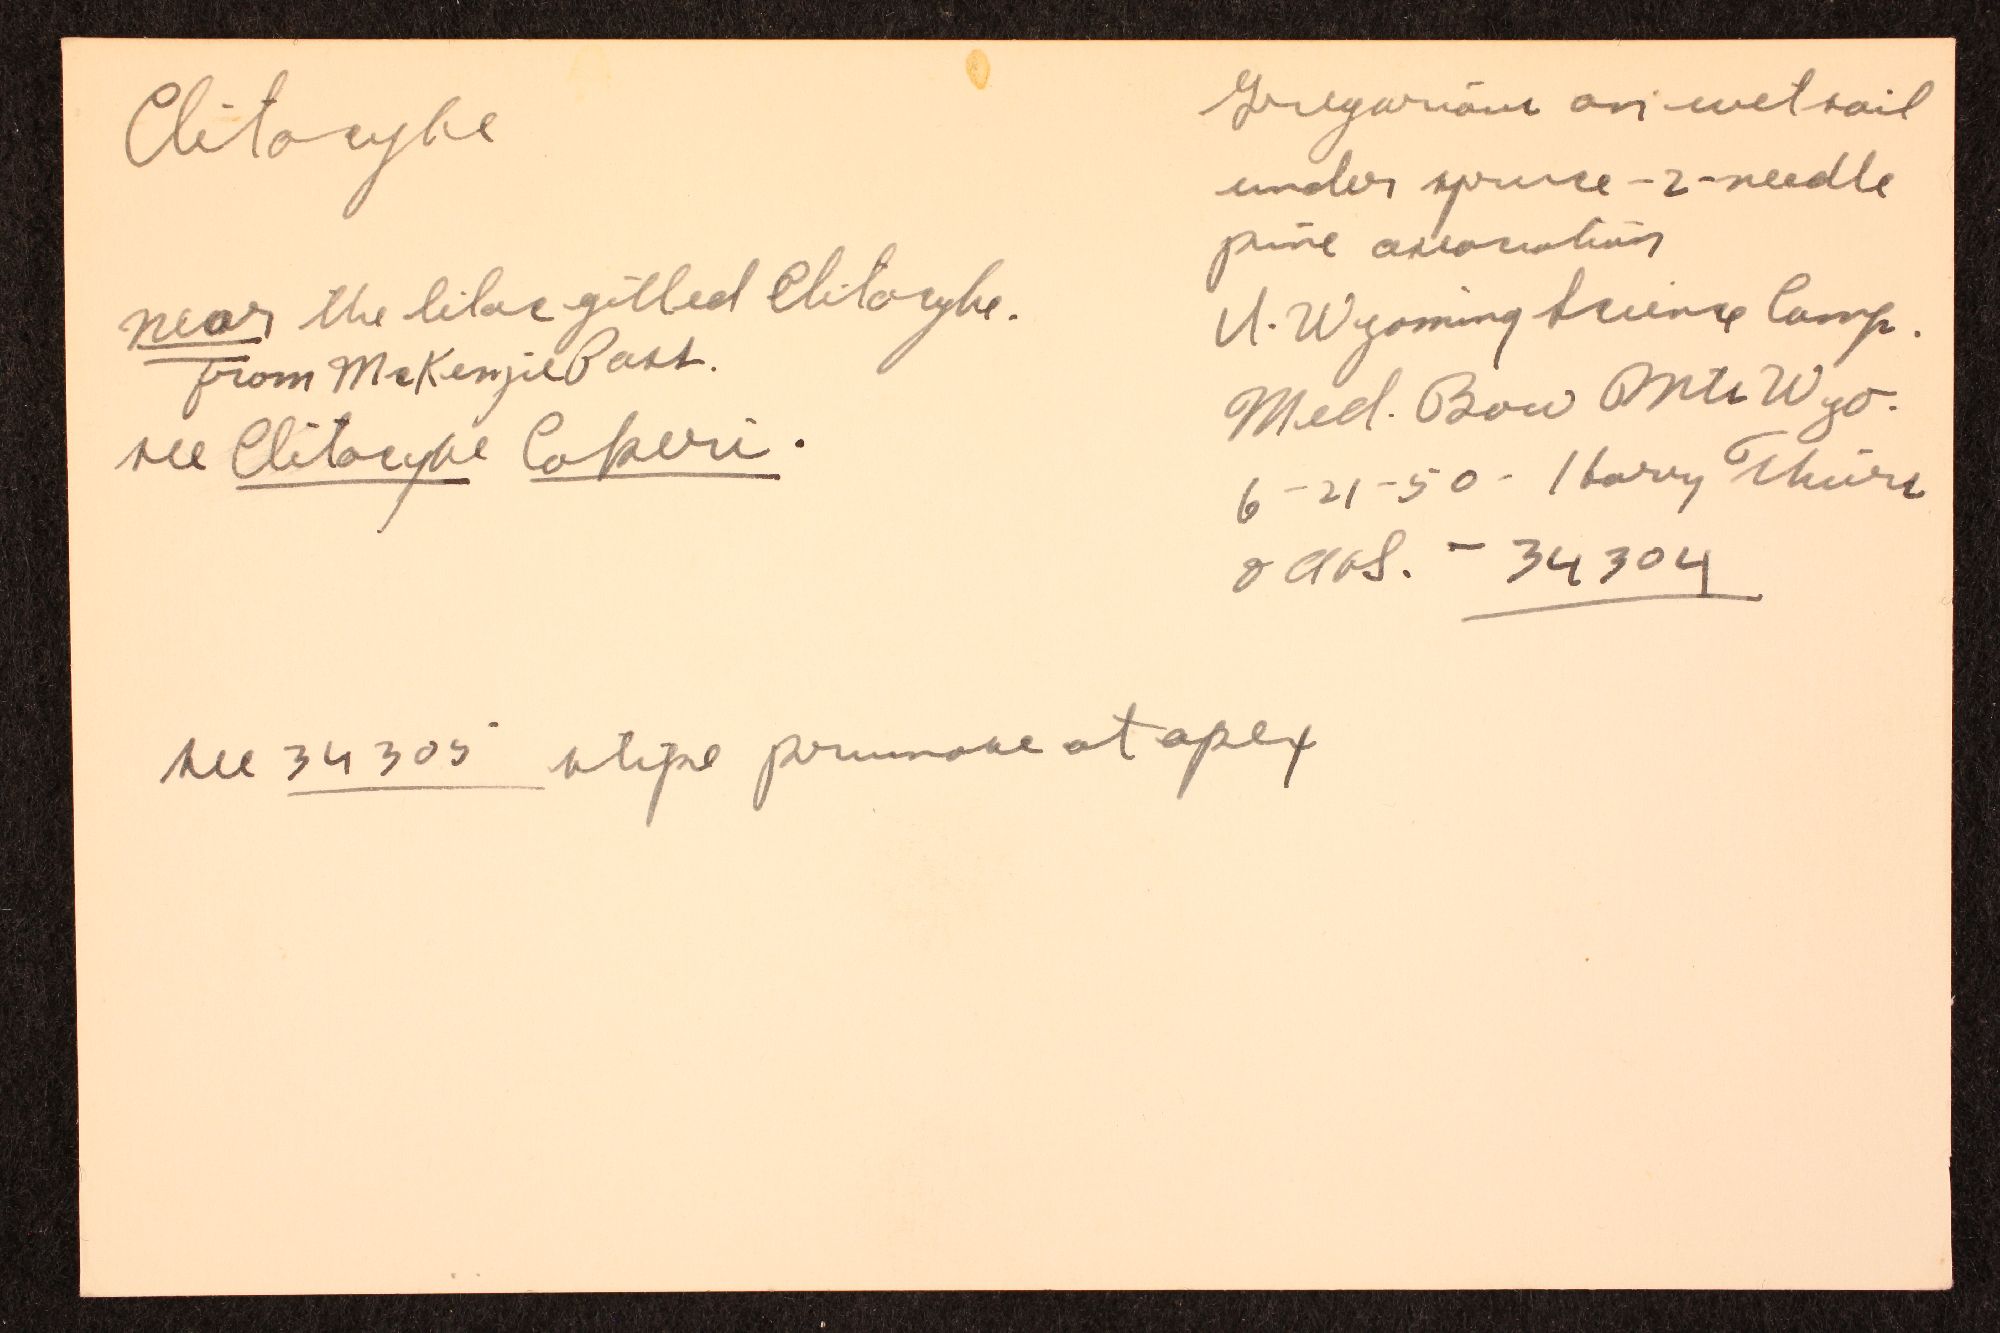 Clitocybe
near the lilac gilled Clitocybe.
from McKenzie Pass.
see Clitocybe Cokeri.
Gregarious on wet soil
under spruce-2-needle
pine association
U. Wyoming Science Camp.
Med. Bow Mts Wyo.
6-21-50- Harry Thiers
& AHS. - 34304
see 34305 stipe pruinose at apex